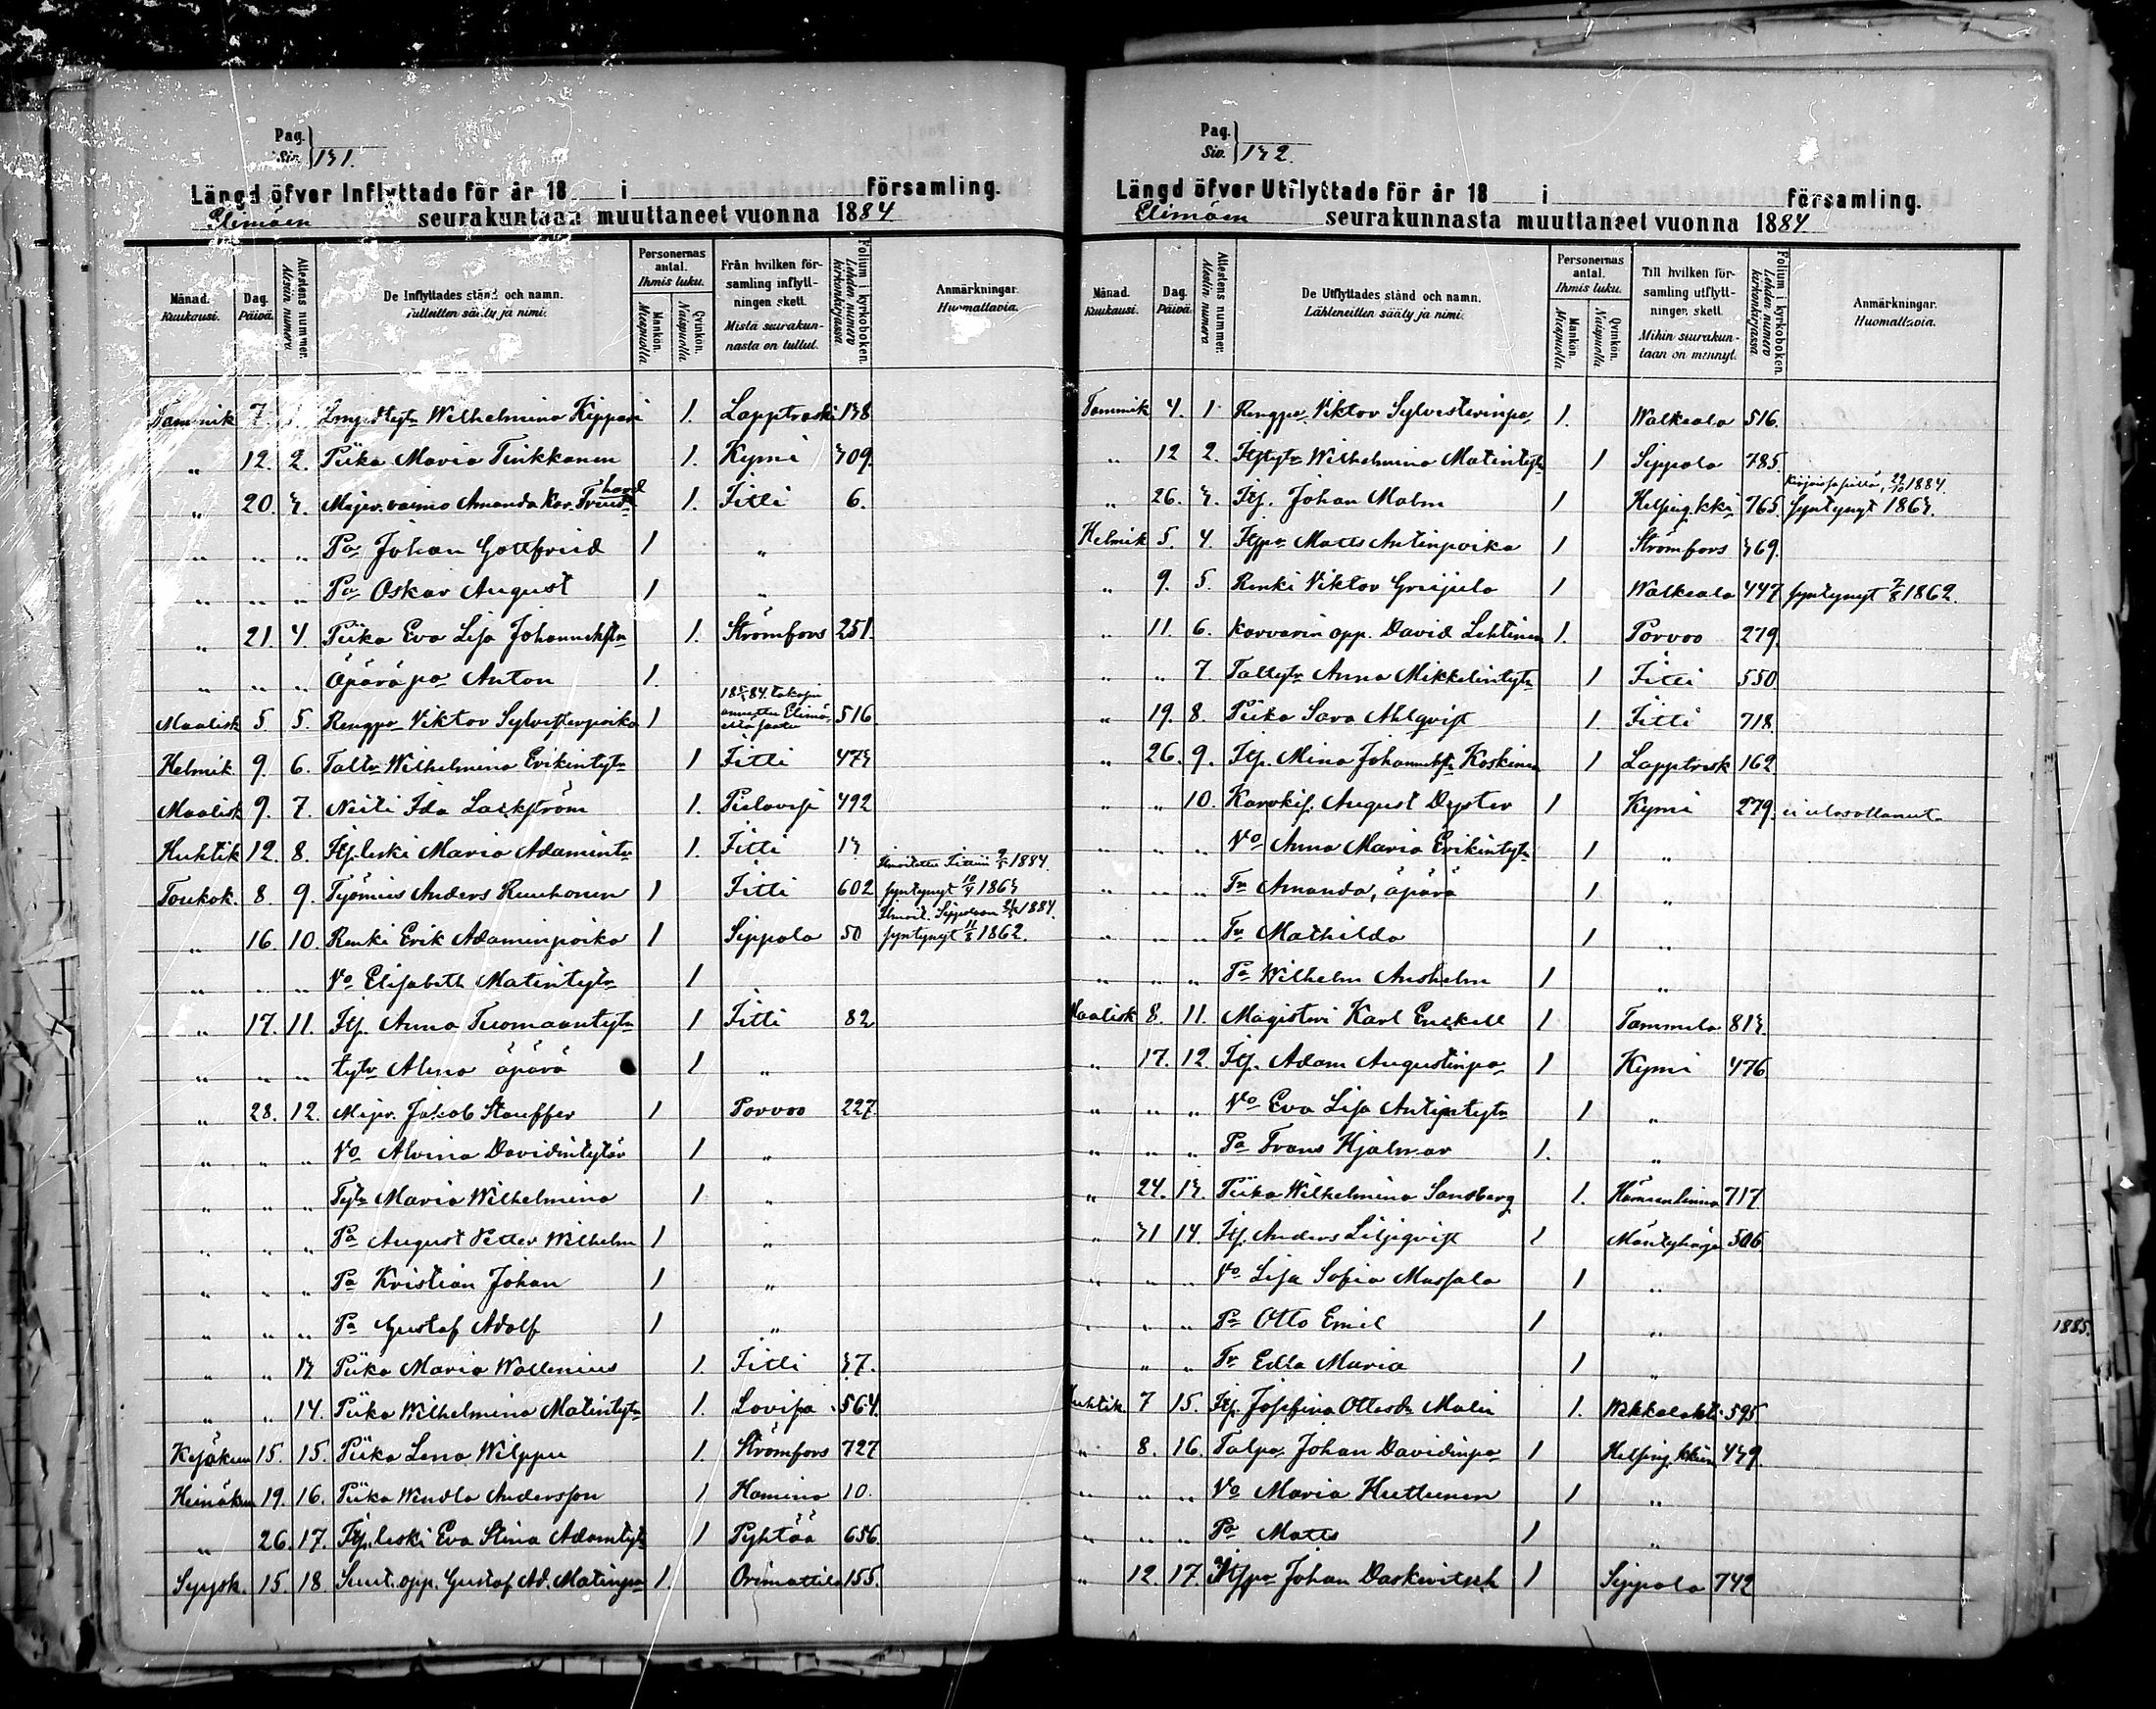 Pag.
Siv. 131.
Längd öfver Inflyttade för år 18 i församling.
Elimäen seurakuntaan muuttaneet vuonna 1884
Månad. Kuukausi.
Dag. Päivä.
Attestens nummer. Atestin numero
De Inflyttades stånd och namn. Tulleitten sääty ja nimi.
Personernas antal. Ihmis luku.
Mankön. Miespuolia
Qvinkön. Naispuolia
Från hvilken församling inflyttningen skett. Mistä seurakunnasta on tullut.
Folium i kyrkoboken. Lehden numero kirkonkirjassa
Anmärkningar. Huomattavia.
Tammik 7. Wilhelmina Kippari 1. Lapptrask 138
" 12. 2. Piika Maria Tiukkanen 1. Kymi 309.
" 20. 3. Mejer. vaimo Amanda Kar. 1. Jitti 6.
" " " Pa Johan Gottfried 1 "
" " " Pa Oskar August 1 "
" 21. 4. Piika Eva Lisa 1. Strömfors 251.
" " " Äpärä pa Anton 1.
Maalisk 5. 5. Rengpa Viktor Sylvesterpoika 1 516
Helmik. 9. 6. Taltr Wilhelmina Erikintytr 1 Jitti 473
Maalisk 9. 7. Neiti Ida Lackström 1. Pielavesi 492
Huhtik 12. 8. Its. leski Maria Adamintr 1. Jitti 13
Toukok. 8. 9. Työmies Anders Ruuhonen 1 Jitti 602 syntynyt 10/4 1863
" 16. 10. Renki Erik Adaminpoika 1 Sippola 50 syntynyt 11/8 1862.
" " " Vo Elisabeth Matintytr 1
" 17. 11. Its. Anna Tuomaantytr 1 Jitti 82
" " " tytr Alma äpärä 1 "
" 28. 12. Mejer. Jakob Stauffer 1 Porvoo 227
" " " Vo Alvina Davidintytär 1 "
" " " Tytr Maria Wilhelmina 1 "
" " " Pa August Petter Wilhelm 1 "
" " " Pa Kristian Johan 1 "
" " " Pa Gustaf Adolf 1 "
" " 13 Piika Maria Wallenius 1. Jitti 37.
" " 14. Piika Wilhelmina Matintytr 1. Lovisa 564.
Kesäkuu 15. 15. Piika Lena Wilppu 1. Strömfors 727
Heinäkuu 19. 16. Piika Wendla Andersson 1 Hamina 10.
" 26. 17. Its. leski Eva Stina Adamtytr 1 Pyhtää 656.
Syysk. 15. 18 Suut. opp. Gustaf Ad. Matinpa 1. Orimattila 155.
Pag.
Siv. 132.
Längd öfver Utflyttade för år 18 i församling.
Elimäen seurakunnasta muuttaneet vuonna 1884
Månad. Kuukausi.
Dag. Päivä.
Attestens nummer. Atestin numero
De Utflyttades stånd och namn. Lähteneitten sääty ja nimi.
Personernas antal. Ihmis luku.
Mankön. Miespuolia
Qvinkön. Naispuolia
Till hvilken församling utflyttningen skett. Mihin seurakuntaan on mennyt.
Folium i kyrkoboken. Lehden numero kirkonkirjassa
Anmärkningar. Huomattavia.
Tammik 4. 1 Rengpa Viktor Sylvesterinpa 1. Walkeala 516.
" 12 2. Itstytr Wilhelmina Matintytr 1 Sippola 785.
" 26. 3. Its. Johan Malm 1 Helsing. kki 765. syntynyt 1863.
Helmik 5. 4. Itspa Matts Antinpoika 1 Strömfors 369.
" 9. 5. Renki Viktor Greijula 1 Walkeala 447 syntynyt 7/8 1862.
" 11. 6. Karvarin opp. David Lehtinen 1. Porvoo 279.
" " 7. Taltytr Anna Mikkelintytr 1 Jitti 550
" 19. 8. Piika Sara Ahlqvist 1. Jitti 718.
" 26. 9. Itp. Mina Koskinen 1 Lapptresk 162
" " 10. August Dyster 1 Kymi 279. ei ulosottanut
" " " Vo Anna Maria Erikintytr 1 "
" " " Tr Amanda, äpärä 1 "
" " " Tr Mathilda 1 "
" " " Pa Wilhelm Anshelm 1 "
Maalisk 8. 11. Magisteri Karl Enckell 1 Tammela 813.
" 17. 12. Itp. Adam Augustinpa 1 Kymi 476
" " " Vo Eva Lisa Antintytr 1 "
" " " Pa Frans Hjalmar 1. "
" 24. 13. Piika Wilhelmina Sandberg 1. Hämeenlinna 717.
" 31 14 Itp. Anders Liljeqvist 1 Mäntyharju 506
" " " Vo Lisa Sofia Mussala 1 "
" " " Pa Otto Emil 1 "
" " " Tr Edla Maria 1 "
Huhtik. 7 15. Itp. Josefina Ottosdr Malin 1. Wehkalahti 595
" 8. 16. Talpa Johan Davidinpa 1 Helsing. 439.
" " " Vo Maria Huttunen 1 "
" " " Pa Matts 1 "
" 12. 17. Itspa Johan Daskevitsch 1 Sippola 742
1885.